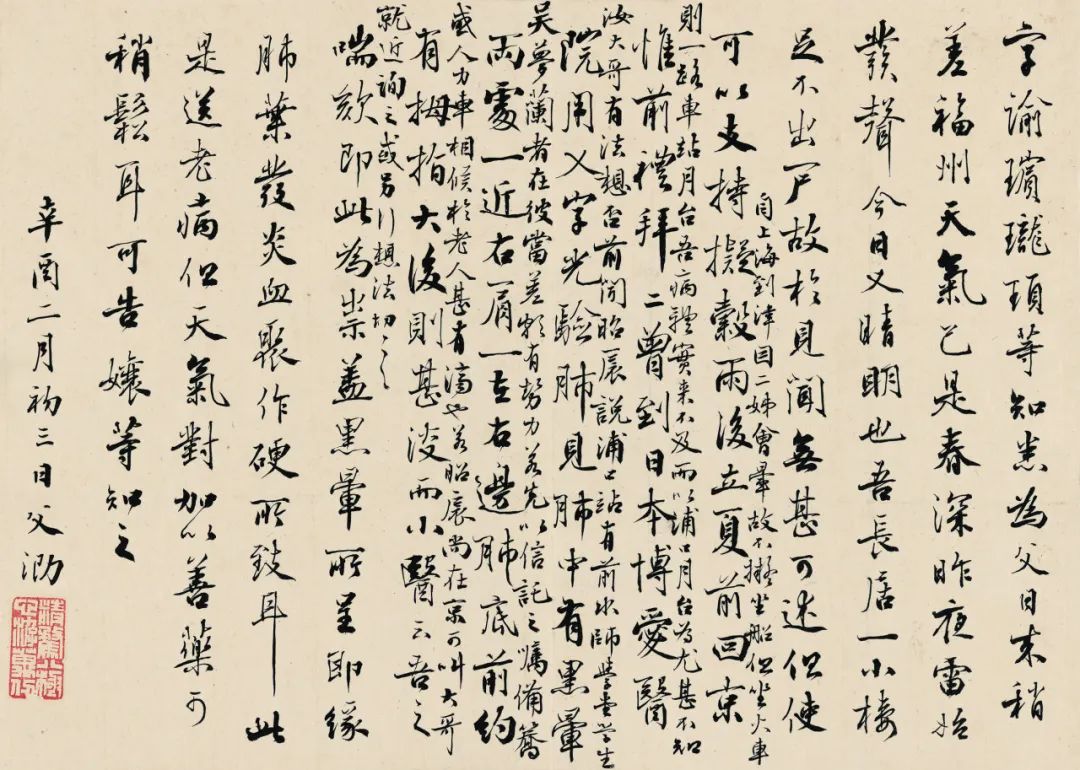 字諭璸瓏頊等知悉為父日來稍
差福州天氣已是春深昨夜雷始
發聲今日又晴明也吾長居一小樓
足不出戶故於見聞無甚可述但使
可以支持擬穀雨後立夏前回京
自上海到津因二姊會暈故不擬坐船但坐火車
則一路車站月台吾病體實來不及而以浦口月台為尤甚不知
汝大哥有法想否前聞昭扆說浦口站有前水師學堂學生
吳夢蘭者在彼當差頗有勢力若先以信託之囑備籐
或人力車相候於老人甚有濟也若昭扆尚在京可叫大哥
就近詢之或另行想法切切
惟前禮拜二曾到日本博愛醫
院用乂字光驗肺見肺中有黑暈
兩處一近右肩一在右邊肺底前約
有拇指大後則甚淡而小醫云吾之
喘欬即此為祟蓋黑暈所呈即緣
肺葉發炎血聚作硬所致耳此
是送老病但天氣對加以善藥可
稍鬆耳可告孃等知之
辛酉二月初三日父泐
精騖八極
心游萬仞